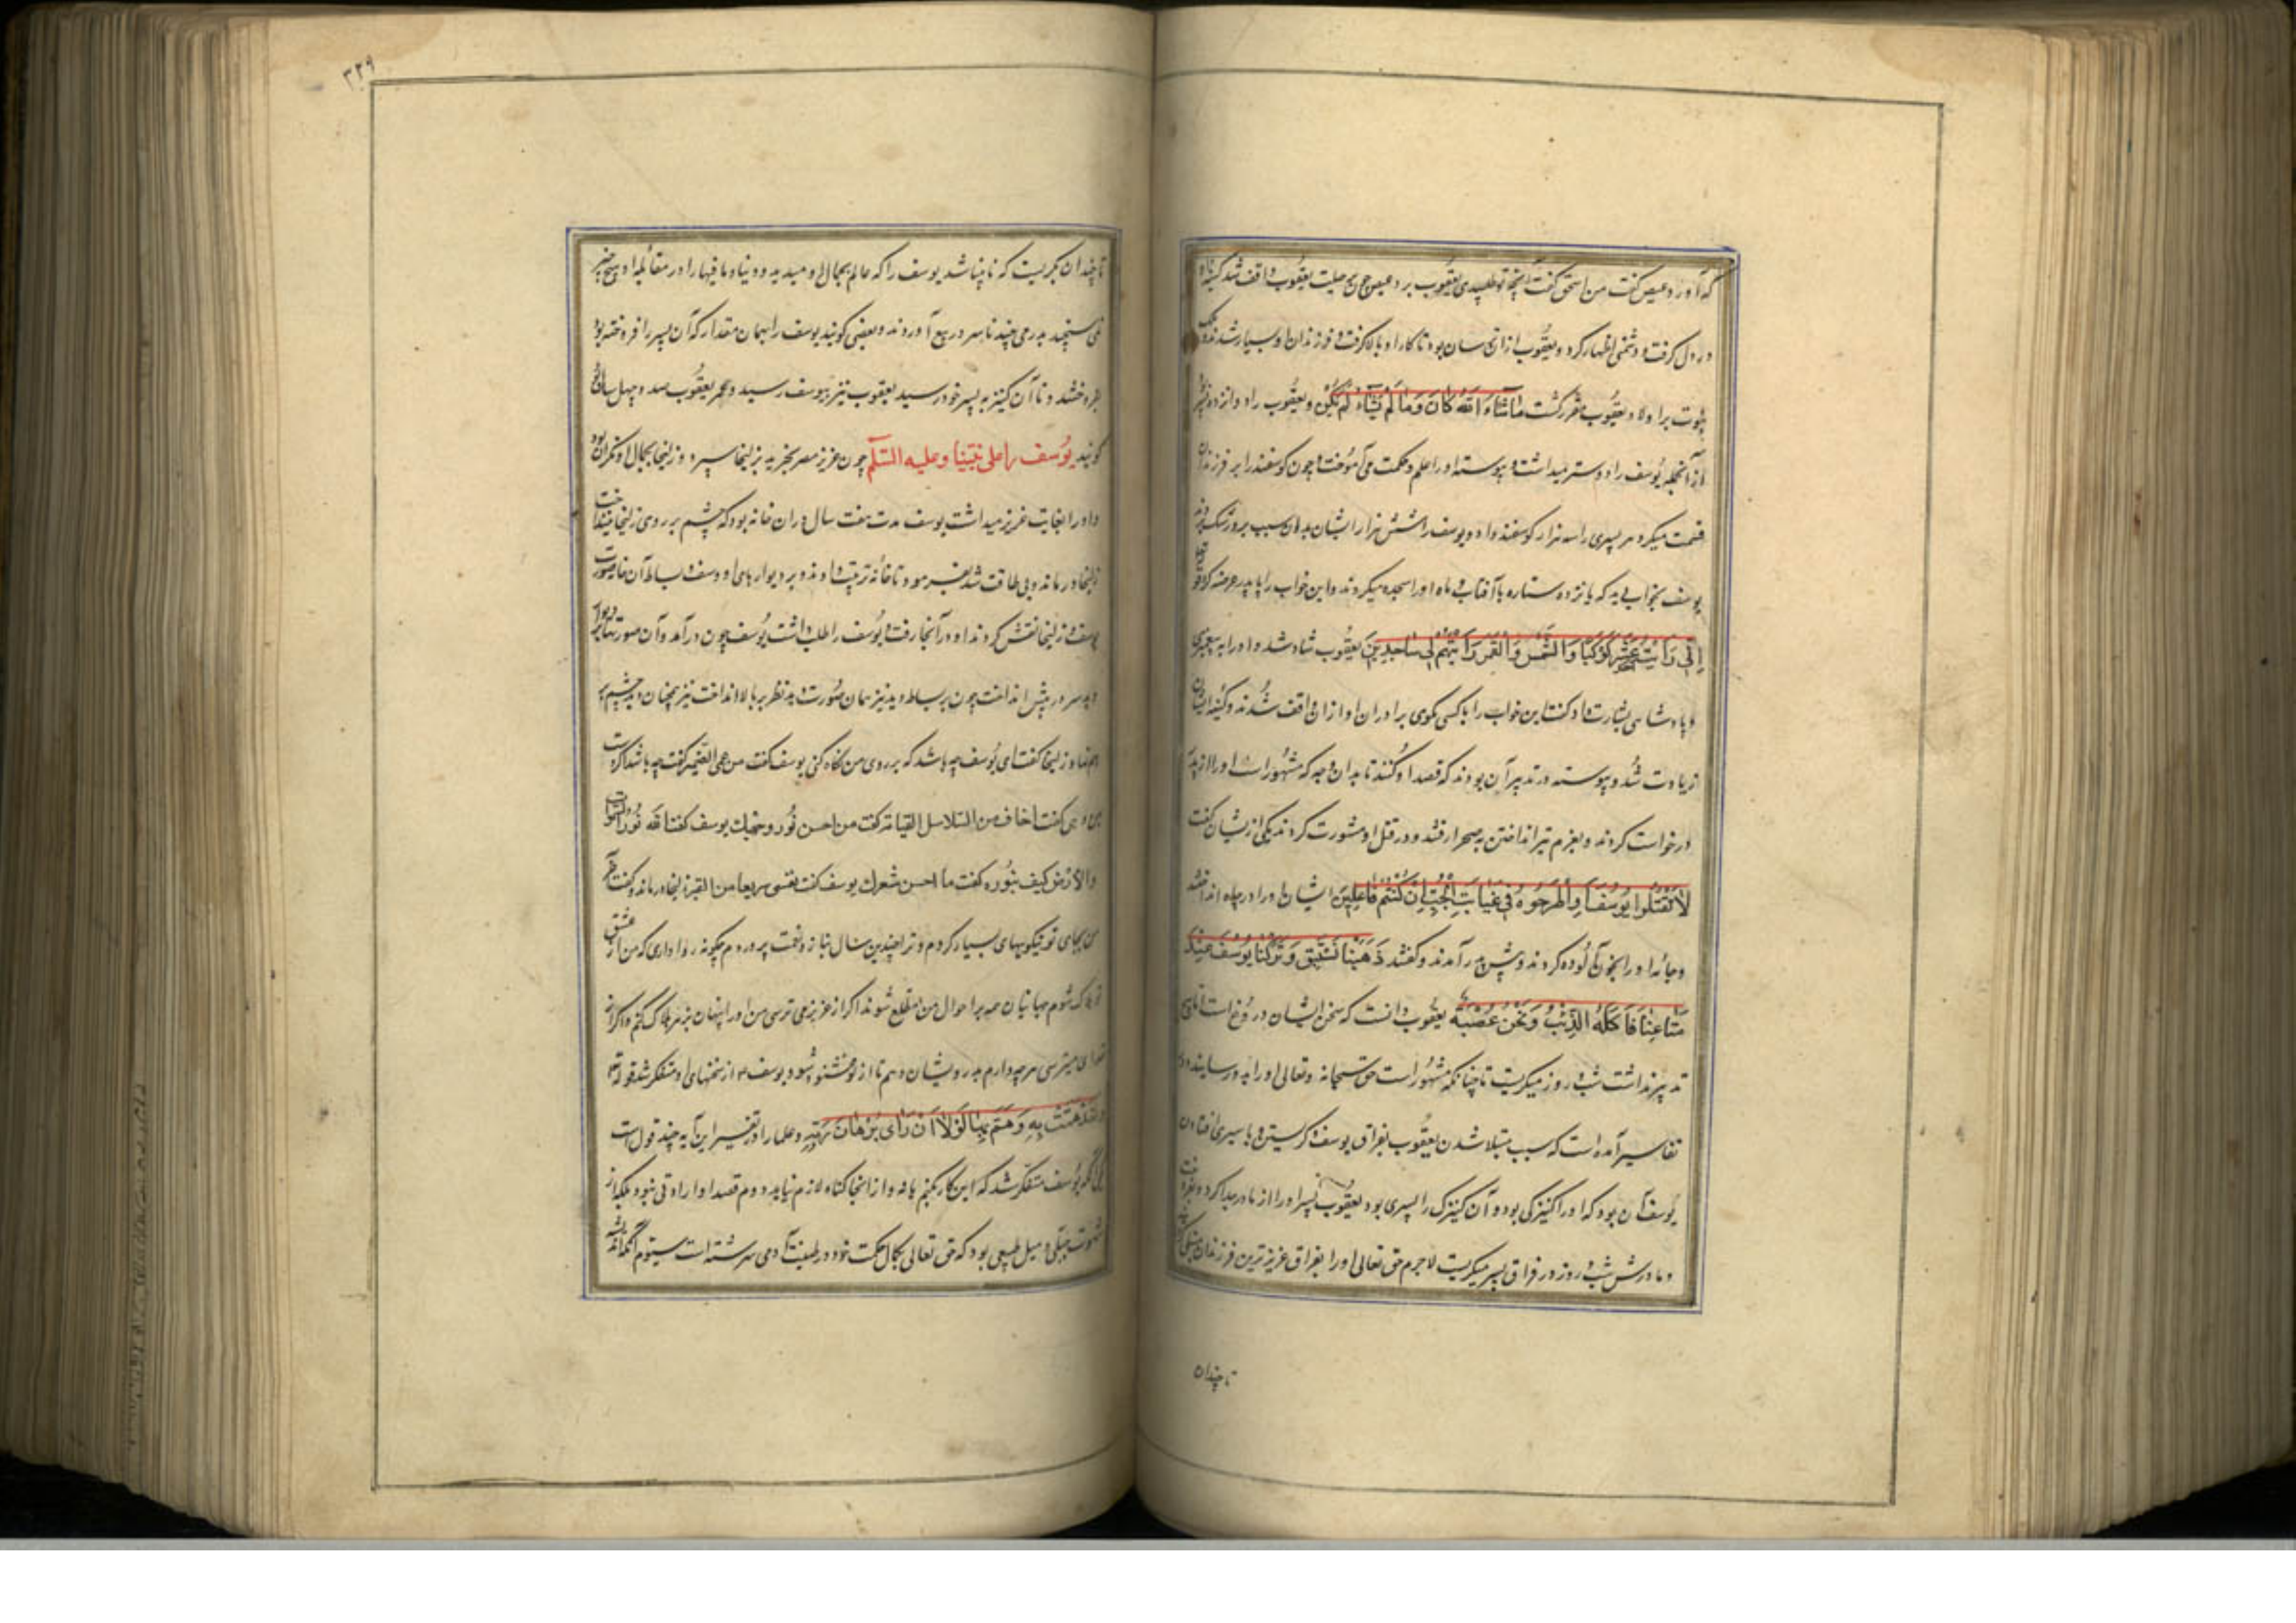 که آورد عیص گفت من اسحق گفت آنچه تو طلبیدی یعقوب برد عیص چون بر حیلت یعقوب واقف شد کینه او
در دل گرفت و دشمنی اظهار کرد و یعقوب ازان هراسان بود تا کار او بالا گرفت و فرزندان او بسیار شدند و ملک
نبوت بر اولاد یعقوب مقرر گشت ما شاء الله کان وما لم یشاء لم یکن و یعقوب را دوازده پسر بود
از آنجمله یوسف را دوستر میداشت و پیوسته او را علم و حکمت می آموخت و چون گوسفند را بر فرزندان
قسمت میکرد هر پسری را سه هزار گوسفند داد و یوسف را شش هزار ایشان بدان سبب برو رشک بردند
یوسف بخواب دید که یازده ستاره با آفتاب و ماه او را سجده میکردند و این خواب را با پدر عرضه کرد قوله تعالی
اِنّی رَاَیتُ اَحَدَ عَشَرَ کَوکَبًا وَالشَّمسَ وَالقَمَرَ رَاَیتُهُم لی ساجِدینَ یعقوب شاد شد و او را به پیغمبری
و پادشاهی بشارت داد و گفت این خواب را با کسی مگوی برادران او ازان واقف شدند و کینه ایشان
زیادت شد و پیوسته در تدبیر آن بودند که قصد او کنند تا بدان وجه که مشهور است او را از پدر
درخواست کردند و بعزم تیر انداختن به صحرا رفتند و در قتل او مشورت کردند یکی از یشان گفت
لا تَقتُلوا یوسُفَ وَاَطرِحوهُ فی غَیابَتِ الجُبِّ اِن کُنتُم فاعِلینَ ایشان او را در چاه انداختند
و جامه او را بخون آلوده کردند و پیش پدر آمدند و گفتند ذَهَبنا نَستَبِق وَتَرَکنا یوسُفَ عِندَ
مَتاعِنا فَاَکَلَهُ الذِّئبُ وَنَحنُ عُصبَة یعقوب دانست که سخن ایشان دروغ است اما هیچ
تدبیر نداشت شب و روز میگریست تا چنانکه مشهور است حق سبحانه و تعالی او را بدو رسانید و در
تفاسیر آمده است که سبب مبتلا شدن یعقوب بفراق یوسف و گریستن و باسیری افتادن
یوسف آن بود که او را کنیزکی بود و آن کنیزک را پسری بود یعقوب پسر او را از مادر جدا کرد و بفروخت
و مادرش شب و روز در فراق پسر میگریست لاجرم حق تعالی او را بفراق عزیزترین فرزندان مبتلا کرد
تا چندان
۳۲۹
تا چندان بگریست که نابینا شد یوسف را که عالم بجمال او میدید و دنیا و ما فیها را در مقابله او هیچ چیز
نمی سنجید بدرمی چند ناسره در بیع آوردند و بعضی گویند یوسف را بهمان مقدار که آن پسر را فروخته بود
بفروختند و تا آن کنیز به پسر خود رسید یعقوب نیز بیوسف رسید و عمر یعقوب صد و چهل سال
گویند یوسف را علی نبینا وعلیه السلم چون عزیز مصر بخرید بزلیخا سپرد و زلیخا بجمال او نگران بود
و او را بغایت عزیز میداشت یوسف مدت هفت سال دران خانه بود که چشم بر روی زلیخا نینداخت
زلیخا درماند و بی طاقت شد بفرمود تا خانه ترتیب دادند و بر دیوارهای او و سقف و بساط آن خانه صورت
یوسف و زلیخا نقش کردند او در آنجا رفت و یوسف را طلب داشت یوسف چون درآمد و آن صورتها بر دیوار
دید سر در پیش انداخت چون بر بساط دید نیز همان صورت دید نظر بر بالا انداخت نیز همچنان دید چشم بر
هم نهاد زلیخا گفت ای یوسف چه باشد که بر روی من نگاه کنی یوسف گفت من عمی القیمه گفت چه باشد اگر دست
گفت اخاف من السلاسل القیامة گفت من احسن نور وجهك یوسف گفت الله نور السموات
والارض کیف بنوره گفت ما احسن شعرك یوسف گفت سریعا من القبر زلیخا درماند و گفت
من بجای تو نیکویهای بسیار کردم و ترا چندین سال بناز و نعمت پروردم چگونه روا داری که من از عشق
تو هلاک شوم جهانیان همه بر احوال من مطلع شوند اگر از عزیز می ترسی من او را پنهان بزهر هلاک کنم و اگر از
خدای میترسی هر چه دارم بدرویشان دهم تا از تو خشنود شود یوسف از سخنهای او متفکر شد قوله تعالی
وَلَقَد هَمَّت بِهِ وَهَمَّ بِها لَولا اَن رَای بُرهانَ رَبِّهِ و علما را در تفسیر این آیه چند قول است
یکی آنکه یوسف متفکر شد که این کار بکنم یا نه و از اینجا گناه لازم نیاید دوم قصد او ارادتی نبود بلکه از
شهوت جبلی و میل طبیعی بود که حق تعالی بکمال حکمت خود در طینت آدمی سرشته است سیوم آنکه